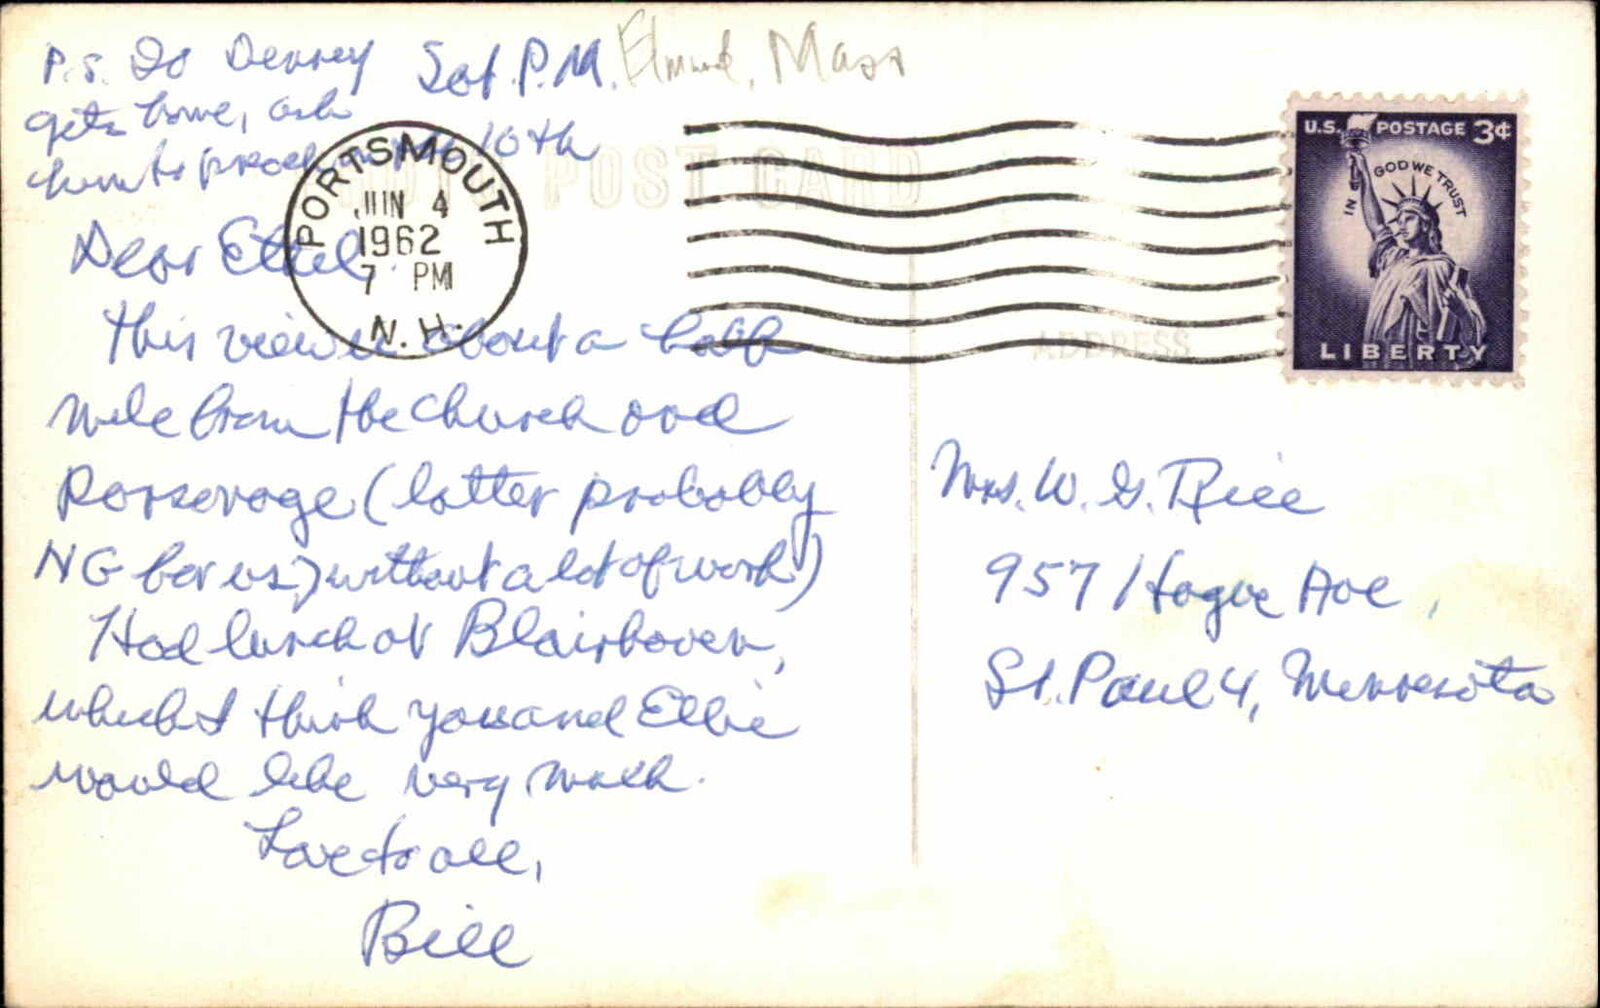 P.S. If Denney
gets home, ask
him to preach 10th
Sat. P.M.
Elmwd, Mass
Dear Ethel,
This view is about a half
mile from the church and
Parsonage (latter probably
NG for us) without a lot of work)
Had lunch at Blairhaven,
which I think you and Ellie
would like very much.
Love to all,
Bill
PORTSMOUTH
JUN 4
1962
7 PM
N.H.
POST CARD
ADDRESS
U.S. POSTAGE 3¢
IN GOD WE TRUST
LIBERTY
Mrs. W. G. Rice
957 Hague Ave,
St. Paul 4, Minnesota